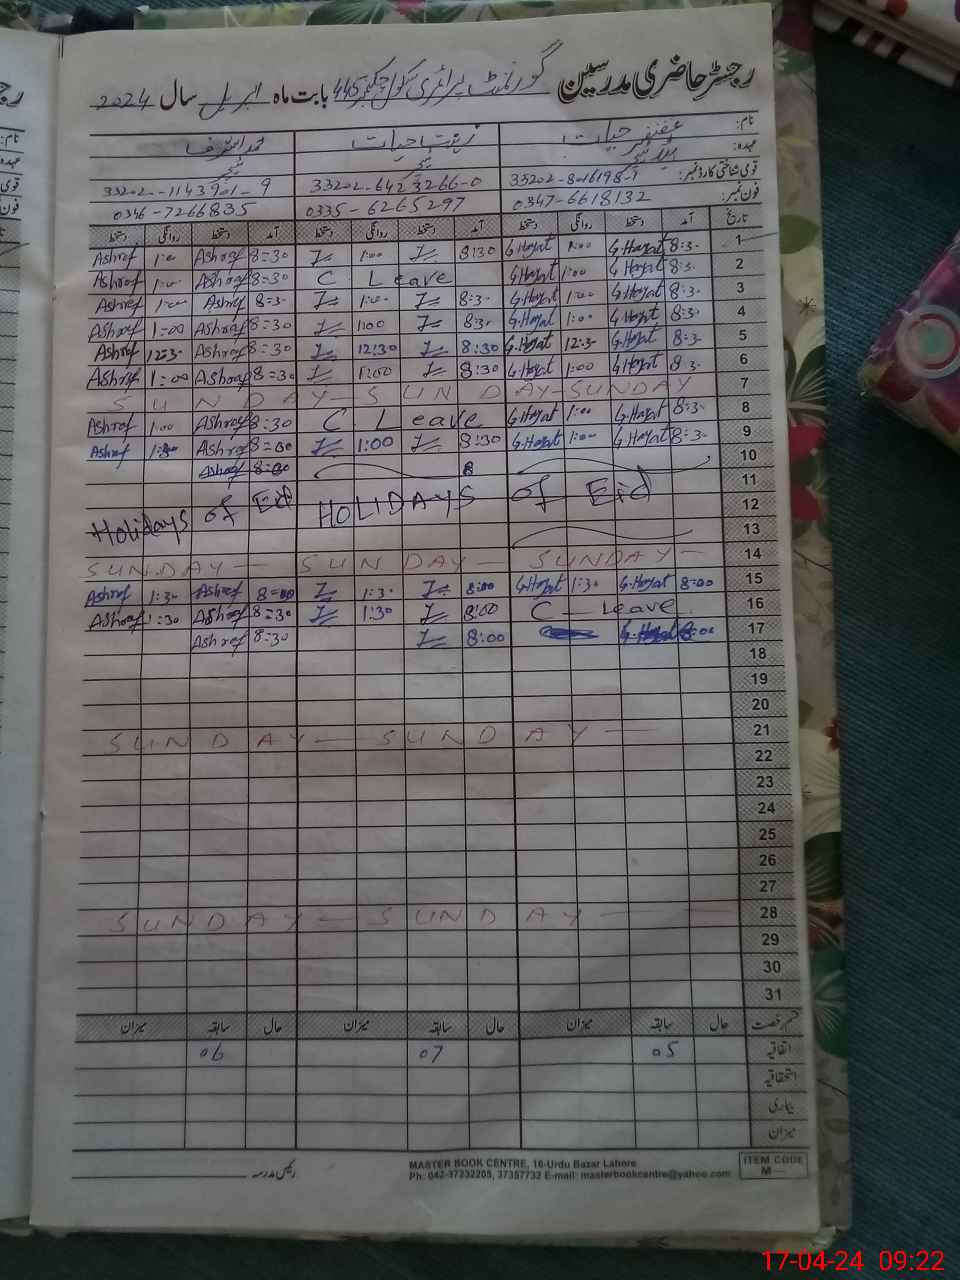 رجسٹر حاضری مدرسین گورنمنٹ پرائمری سکول چک نمبر 445 بابت ماہ اپریل سال 2024
نام: غضنفر حیات زینت حیات محمد اشرف
عہدہ:
قومی شناختی کارڈ نمبر: 33202-8016198-9 33202-6423266-0 33202-1143901-9
فون نمبر: 0347-6618132 0335-6265297 0346-7266835
تاریخ آمد دستخط روانگی دستخط آمد دستخط روانگی دستخط آمد دستخط روانگی دستخط
Ashraf 1:00 Ashraf 8=30 1:00 8:30 G.Hayat 1:00 G.Hayat 8:3- 1
Ashraf 1:00 Ashraf 8=30 C Leave G.Hayat 1:00 G.Hayat 8:3- 2
Ashraf 1:00 Ashraf 8=3- 1:00 8:3- G.Hayat 1:00 G.Hayat 8:3- 3
Ashraf 1=00 Ashraf 8=30 1:00 8:3- G.Hayat 1:00 G.Hayat 8:3- 4
Ashraf 12:3- Ashraf 8=30 12:30 8:30 G.Hayat 12:3- G.Hayat 8:3- 5
Ashraf 1=00 Ashraf 8=30 1:00 8:30 G.Hayat 1:00 G.Hayat 8:3- 6
SUNDAY-SUNDAY-SUNDAY 7
Ashraf 1:00 Ashraf 8=30 C Leave G.Hayat 1:00 G.Hayat 8:3- 8
Ashraf Ashraf 1:00 8:30 G.Hayat 1:00 G.Hayat 8:3- 9
10
11
Holidays of Eid HOLIDAYS of Eid 12
13
SUNDAY — SUNDAY — SUNDAY — 14
Ashraf 1:30 Ashraf 8=00 1:30 8:00 G.Hayat 1:30 G.Hayat 8=00 15
Ashraf 1:30 Ashraf 8=30 1:30 8:00 C — Leave 16
Ashraf 8=30 8:00 G.Hayat 8:00 17
18
19
20
SUNDAY — SUNDAY — 21
22
23
24
25
26
27
SUNDAY — SUNDAY — 28
29
30
31
قسم رخصت حال سابقہ میزان حال سابقہ میزان حال سابقہ میزان
اتفاقیہ 05 07 06
استحقاقیہ
بیماری
میزان
رئیس مدرسہ
MASTER BOOK CENTRE, 16-Urdu Bazar Lahore
Ph: 042-37232205, 37357732 E-mail: masterbookcentre@yahoo.com
ITEM CODE
M—
17-04-24 09:22